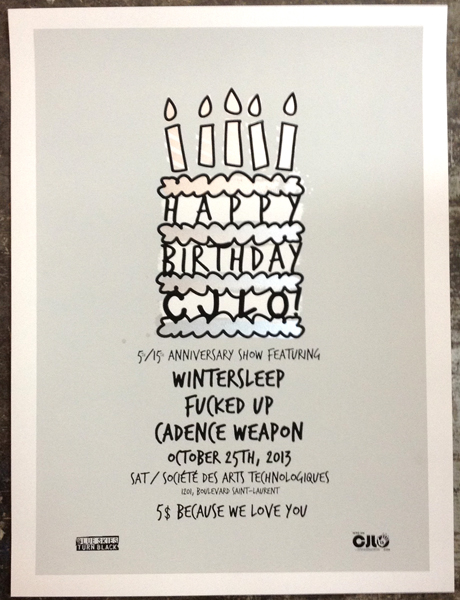 HAPPY
BIRTHDAY
CJLO!
5th/15th ANNIVERSARY SHOW FEATURING
WINTERSLEEP
FUCKED UP
CADENCE WEAPON
OCTOBER 25TH, 2013
SAT / SOCIÉTÉ DES ARTS TECHNOLOGIQUES
1201, BOULEVARD SAINT-LAURENT
5$ BECAUSE WE LOVE YOU
BLUE SKIES
TURN BLACK
CJLO